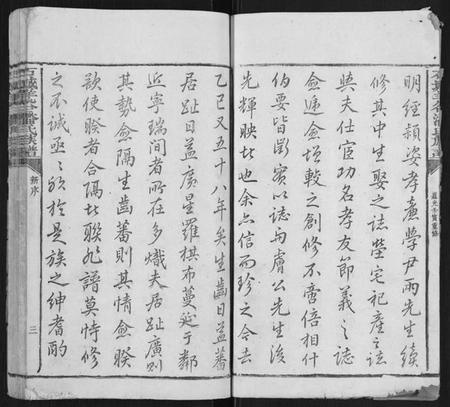 明經穎姿孝廉學尹兩先生續
修其中生娶之誌塋宅祀產之誌
與夫仕宦功名孝友節義之誌
僉遞僉增較之創修不啻倍相什
伯要皆斷實以誌與膚公先生後
先輝映此也余亦信而珍之今去
乙巳又五十八年矣生齒日益蕃
居趾日益廣星羅棋布蔓延于鄰
近寧瑞間者所在多熾夫居趾廣則
其勢愈隔生齒蕃則其情愈睽
欲使睽者合隔者聯兆譜莫恃修
之不誠亟亟於是族之紳耆酌
族譜
新序
三